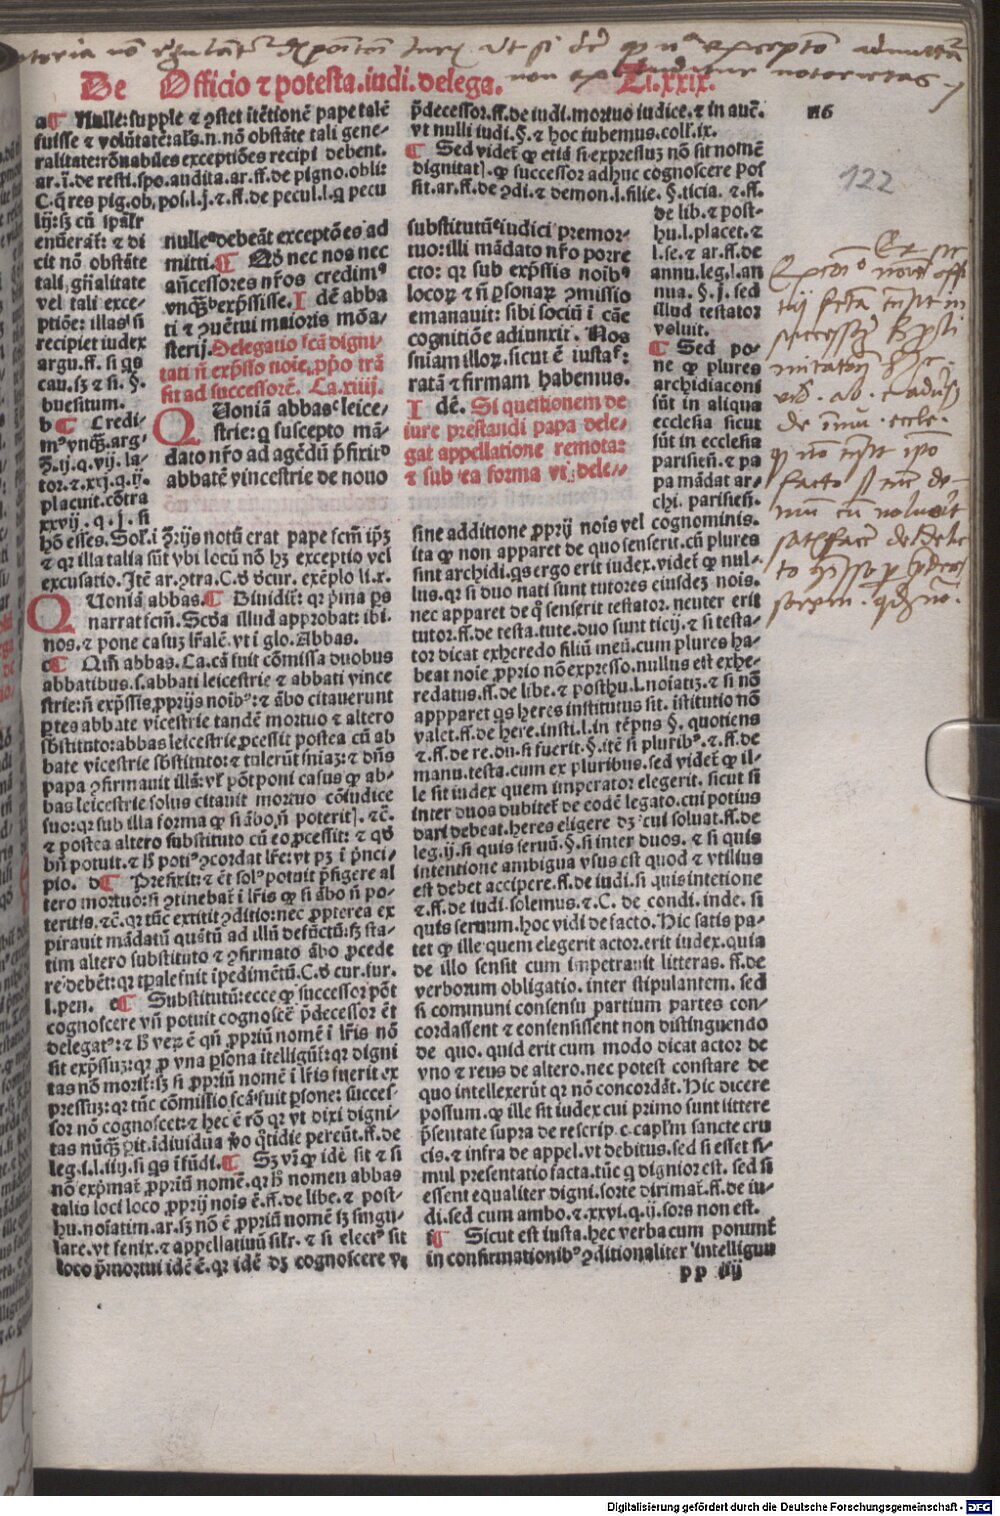 De Officio ⁊ potesta.iudi.delega. Ti.xxix.
n6
122
a ¶ Nulle: supple ⁊ ꝯstet ītētionē pape talē
fuisse ⁊ volūtatē: al̄s.n.nō obstāte tali gene/
ralitate: rōnabiles exceptiōes recipi debent.
ar.ī.de resti.spo.audita.ar.ff.de pigno.obli:
C.q̄ res pig.ob.pos.l.j.⁊ ff.de pecul.l.q pecu
lij: sꝫ cū ip̄alr̄
enūerat̄: ⁊ di
cit nō obstāte
tali, gn̄alitate
vel tali exce/
ptiōe: illas si
recipiet iudex
argu.ff. si qs
cau.sꝫ ⁊ si.§.
buesitum.
b ¶ Credi/
mꝰ vnqꝫ.arg/
placuit.cōtra
xxvij.q.j. si
nulleᵃ debeāt exceptōes ad
mitti. ¶ Ad nec nos nec
an̄cessores nr̄os credimꝰ
vnqꝫᵇ exp̄sisse. I dē abba
ti ⁊ ꝯuētui maioris mōa/
sterij. Delegatio fcā digni/
tati n̄ exp̄sso noīe, ꝓprio trā
sit ad successorē. Ca.xiiij.
Q Uoniā abbasᶜ leice/
strie: q suscepto mā/
dato nr̄o ad agēdū p̄fixitᵈ
abbatē vincestrie de nouo
hō esses. Sol.ī ꝯrijs notū erat pape fcm̄ ip̄ꝫ
⁊ qr illa talia sūt vbi locū nō hꝫ exceptio vel
excusatio. Itē ar.ꝯtra.C.d dcur. exēplo li.x.
Q Uoniā abbas. ¶ Diuidit̄: qr p̄ma ps
narrat fcm̄. Scd̄a illud approbat: ibi.
nos. ⁊ pone casuꝫ lr̄alē. vt ī glo. Abbas.
c ¶ Qm̄ abbas. Ca.cā fuit cōmissa duobus
abbatibus.s.abbati leicestrie ⁊ abbati vince
strie: n̄ exp̄ssis ꝓprijs noībꝰ: ⁊ ābo citauerunt
ꝑtes abbate vicestrie tandē mortuo ⁊ altero
sb̄stituto: abbas leicestrie ꝓcessit postea cū ab
bate vicestrie sb̄stituto: ⁊ tulerūt sniaꝫ: ⁊ dn̄s
papa ꝯfirmauit illā: vl̓ pōt poni casus ꝙ ab/
bas leicestrie solus citauit mortuo cōiudice
suo: qr sub illa forma ꝙ si ābo, n̄ poterit].⁊c̄.
⁊ postea altero substituto cū eo ꝓcessit: ⁊ qd̄
bn̄ potuit. ⁊ h̄ potiꝰ ꝯcordat lr̄e: vt pꝫ ī p̄nci/
pio. d ¶ Prefixit: ⁊ ēt solꝰ potuit p̄figere al
tero mortuo: si ꝯtinebat̄ ī lr̄is ꝙ si ābo n̄ po/
teritis.⁊c̄.qr tūc extitit ꝯditio: nec ꝓpterea ex
pirauit mādatū quātū ad illū defūctū: sꝫ sta/
tim altero substituto ⁊ ꝯfirmato ābo ꝓcede
re debēt: qr tp̄ale fuit īpedimētū.C.d cur.iur.
l.pen. e ¶ Substitutū: ecce ꝙ successor pōt
cognoscere vn̄ potuit cognoscē p̄decessor ēt
delegatꝰ: ⁊ h̄ veꝝ ē qn̄ ꝓpriū nomē ī lr̄is nō
sit exp̄ssuꝫ: qr ꝓ vna ꝑsona itelligūt̄: qr digni
tas nō morit̄: sꝫ si ꝓpriū nomē ī lr̄is fuerit ex
pressuꝫ: qr tūc cōmissio fcā fuit ꝑsone: succes/
sor nō cognoscet: ⁊ hec ē rō qr vt dixi digni/
tas nūqꝫ ꝑit. īdiuidua ꝟo q̄tidie pereūt.ff.de
leg.i.l.iiij.si qs ī fūdi. ¶ Sꝫ vr̄ ꝙ idē sit ⁊ si
nō exp̄mat̄ ꝓpriū nomē.qr h̄ nomen abbas
talis loci loco ꝓprij nois ē.ff.de libe.⁊ post/
hu.noīatim.ar.sꝫ nō ē ꝓpriū nomē sꝫ singu/
lare.vt fenix.⁊ appellatiuū sil̄r.⁊ si electꝰ sit
loco p̄mortui idē ē.qr idē dꝫ cognoscere vt
p̄decessor.ff.de iudi.mortuo iudice.⁊ in autē.
vt nulli iudi.§.⁊ hoc iubemus.coll.ix.
¶ Sed videt̄ ꝙ etiā si expressuꝫ nō sit nomē
dignitat].ꝙ successor adhuc cognoscere pos
sit.ar.ff.de ꝯdi.⁊ demon.l.filie.§.ticia.⁊.ff.
de lib.⁊ post-
hu.l.placet.⁊
l.se.⁊ ar.ff.de
annu.leg.l.an
nua.§.j.sed
illud testator
voluit.
¶ Sed po-
ne ꝙ plures
archidiaconi
sūt in aliqua
ecclesia sicut
sūt in ecclesia
parisien̄.⁊ pa
pa mādat ar/
chi. parisien̄.
substitutūᵉ iudici premor/
tuo: illi mādato nr̄o porre
cto: qr sub exp̄ssis noībꝰ
locoꝝ ⁊ n̄ ꝑsonaꝝ ꝯmissio
emanauit: sibi sociū ī cāe
cognitiōe adiunxit. Nos
sniam illoꝝ.sicut ē iustaᶠ:
ratā ⁊ firmam habemus.
I dē. Si questionem de
iure prestandi papa dele/
gat appellatione remota:
⁊ sub ea forma vt dele//
sine additione ꝓprij nois vel cognominis.
ita ꝙ non apparet de quo senserit.cū plures
sint archidi.qs ergo erit iudex.videt̄ ꝙ nul/
lus.qr si duo nati sunt tutores eiusdeꝫ nois.
nec apparet de q̄ senserit testator. neuter erit
tutor.ff.de testa.tute.duo sunt ticij.⁊ si testa/
tor dicat exheredo filiū meū.cum plures ha/
beat noīe ꝓprio nō expresso.nullus est exhe/
redatus.ff.de libe.⁊ posthu.l.noīatiꝫ.⁊ si nō
appparet qs heres institutus sit. īstitutio nō
valet.ff.de here.insti.l.in tēpus §. quotiens
⁊.ff.de re.du.si fuerit.§.itē si pluribꝰ.⁊.ff.de
manu.testa.cum ex pluribus.sed videt̄ ꝙ il/
le sit iudex quem imperator elegerit. sicut si
inter duos dubitet̄ de eodē legato.cui potius
dari debeat.heres eligere dꝫ cui soluat.ff.de
leg.ij.si quis seruū.§.si inter duos. ⁊ si quis
intentione ambigua vsus est quod ⁊ vtilius
est debet accipere.ff.de iudi.si quis intētione
⁊.ff.de iudi.solemus.⁊.C. de condi.inde. si
quis seruum.hoc vidi de facto. Hic satis pa-
tet ꝙ ille quem elegerit actor.erit iudex.quia
de illo sensit cum impetrauit litteras. ff.de
verborum obligatio. inter stipulantem. sed
si communi consensu partium partes con-
cordassent ⁊ consensissent non distinguendo
de quo. quid erit cum modo dicat actor de
vno ⁊ reus de altero.nec potest constare de
quo intellexerūt qr nō concordāt. Hic dicere
possum.ꝙ ille sit iudex cui primo sunt littere
p̄sentate supra de rescrip.c.capl̄m sancte cru
cis.⁊ infra de appel.vt debitus.sed si esset si-
mul presentatio facta.tūc q dignior est. sed si
essent equaliter digni.sorte dirimat̄.ff.de iu-
di.sed cum ambo.⁊.xxvi.q.ij.sors non est.
f ¶ Sicut est iusta.hec verba cum ponunt̄
in confirmationibꝰ ꝯditionaliter intelligun
pp iij
Digitalisierung gefördert durch die Deutsche Forschungsgemeinschaft - DFG